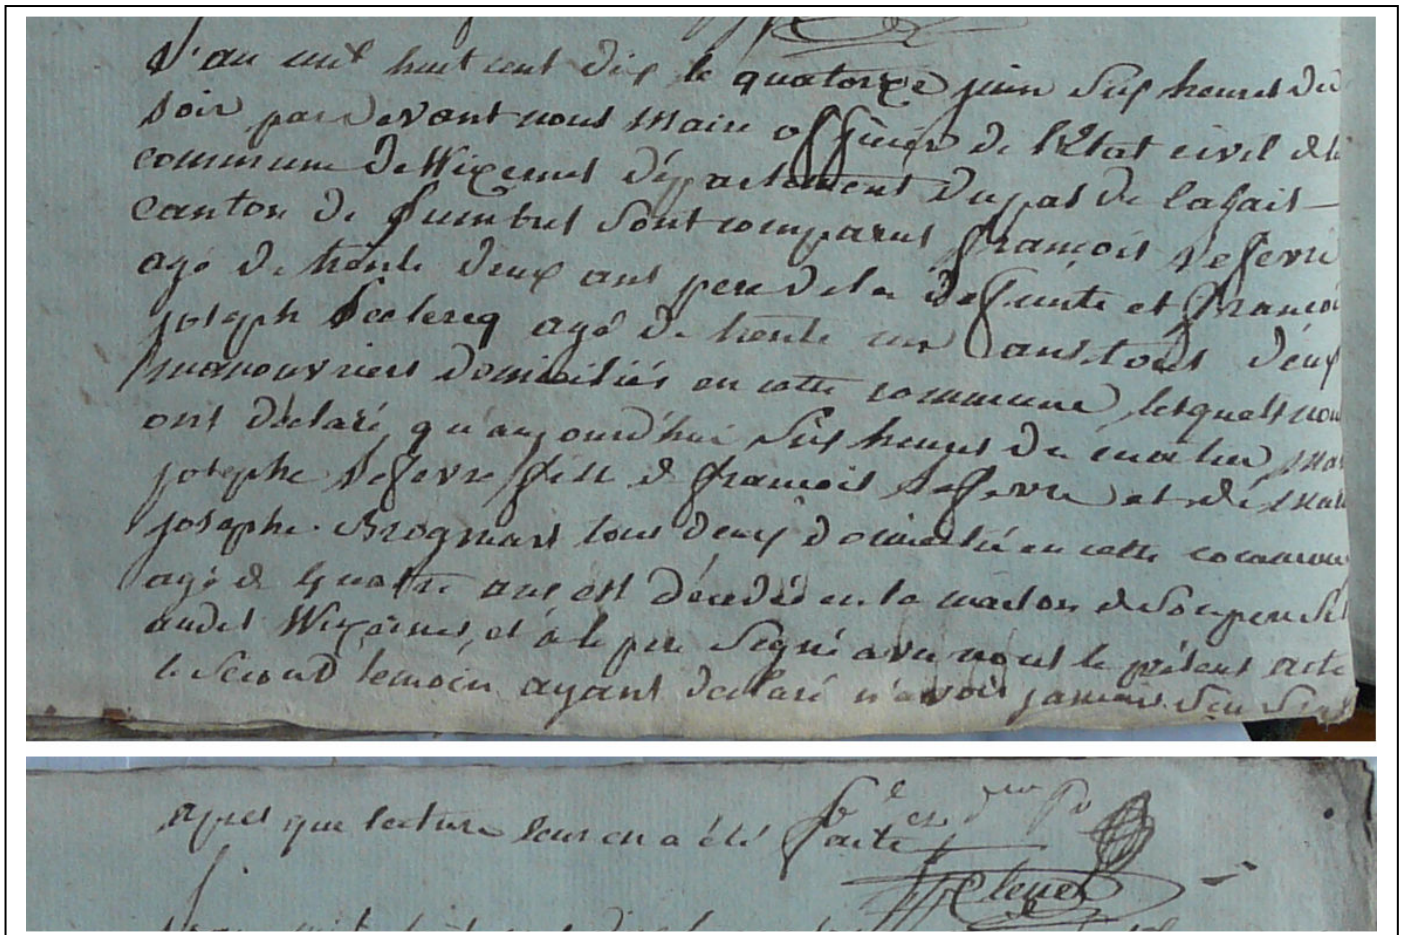 L'an mil huit cent dix le quatorze juin six heures du
soir par devant nous Maire officier de l'Etat civil de la
commune de Wizernes département du pas de Calais
canton de Lumbres sont comparus françois Lefevre
agé de trente deux ans pere de la defunte et françois
joseph Leclercq agé de trente un ans tous deux
manouvriers domiciliés en cette commune lesquels nous
ont déclaré qu'aujourd'hui six heures du matin Marie
josephe Lefevre fille de françois Lefevre et de Marie
josephe Brogniart tous deux domicilié en cette commune
agé de quatre ans est décédé en la maison de son pere sis
audit Wizernes, et a le pere signé avec nous le présent acte
le second temoin ayant declaré n'avoir jamais sçu signer
apres que lecture leur en a été faite